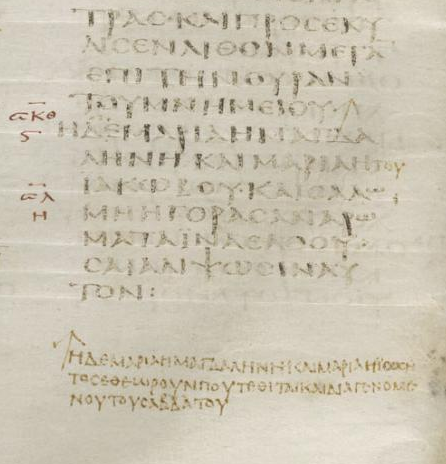 ΤΡΑϹ·ΚΑΙΠΡΟϹΕΚΥ
ΛΙϹΕΝΛΙΘΟΝΜΕΓΑ
ΕΠΙΤΗΝΘΥΡΑΝ
ΤΟΥΜΝΗΜΕΙΟΥ·
ϹΚΘ
Ϛ
ΗΔΕΜΑΡΙΑΗΜΑΓΔΑ
ΛΗΝΗΚΑΙΜΑΡΙΑΗΤΟΥ
ΙΑΚΩΒΟΥ·ΚΑΙϹΑΛΩ
ϹΛ
Η
ΜΗΗΓΟΡΑϹΑΝΑΡΩ
ΜΑΤΑΪΝΑΕΛΘΟΥ
ϹΑΙΑΛΙΨΩϹΙΝΑΥ
ΤΟΝ:
ΗΔΕΜΑΡΙΑΗΜΑΓΔΑΛΗΝΗΚΑΙΜΑΡΙΑΗΪΩϹΗ
ΤΟϹΕΘΕΩΡΟΥΝΠΟΥΤΕΘΙΤΑΙΚΑΙΔΙΑΓΕΝΟΜΕ
ΝΟΥΤΟΥϹΑΒΒΑΤΟΥ